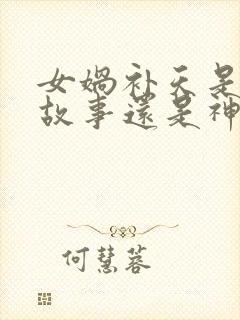 女娲补天是
故事还是神
何慧蓉